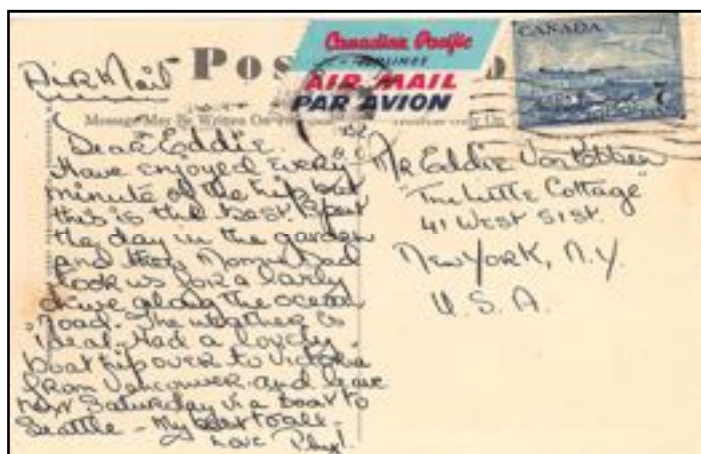 Canadian Pacific
AIRLINES
AIR MAIL
PAR AVION
CANADA
7
Air Mail
Pos
Message May Be Written On
Dear Eddie.
Have enjoyed every
minute of the trip but
this is the best. Spent
the day in the garden
and
took us for a
drive along the ocean
road. The weather is
ideal. Had a lovely
boat trip over to Victoria
from Vancouver and leave
next Saturday via boat to
Seattle - My best to all.
Love Phyl.
Mr Eddie
"The Little Cottage"
41 West 51 St.
New York, N.Y.
U.S.A.